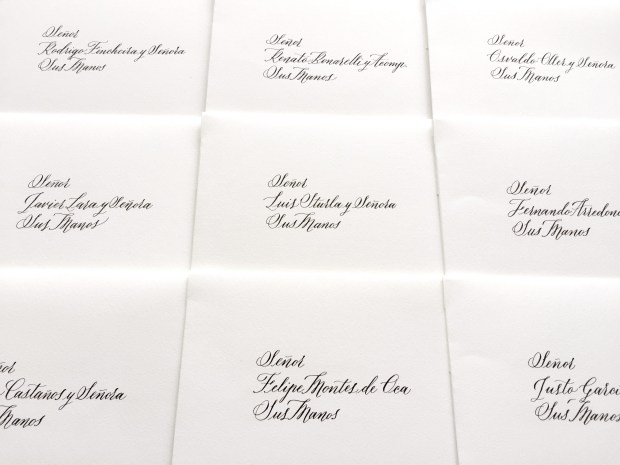 Señor
Rodrigo Fincheira y Señora
Sus Manos
Señor
Renato Benarelli y Acomp.
Sus Manos
Señor
Osvaldo Oller y Señora
Sus Manos
Señor
Javier Lara y Señora
Sus Manos
Señor
Luis Sturla y Señora
Sus Manos
Señor
Fernando
Sus Manos
Castaños y Señora
Manos
Señor
Felipe Montes de Oca
Sus Manos
Señor
Justo
Sus Manos